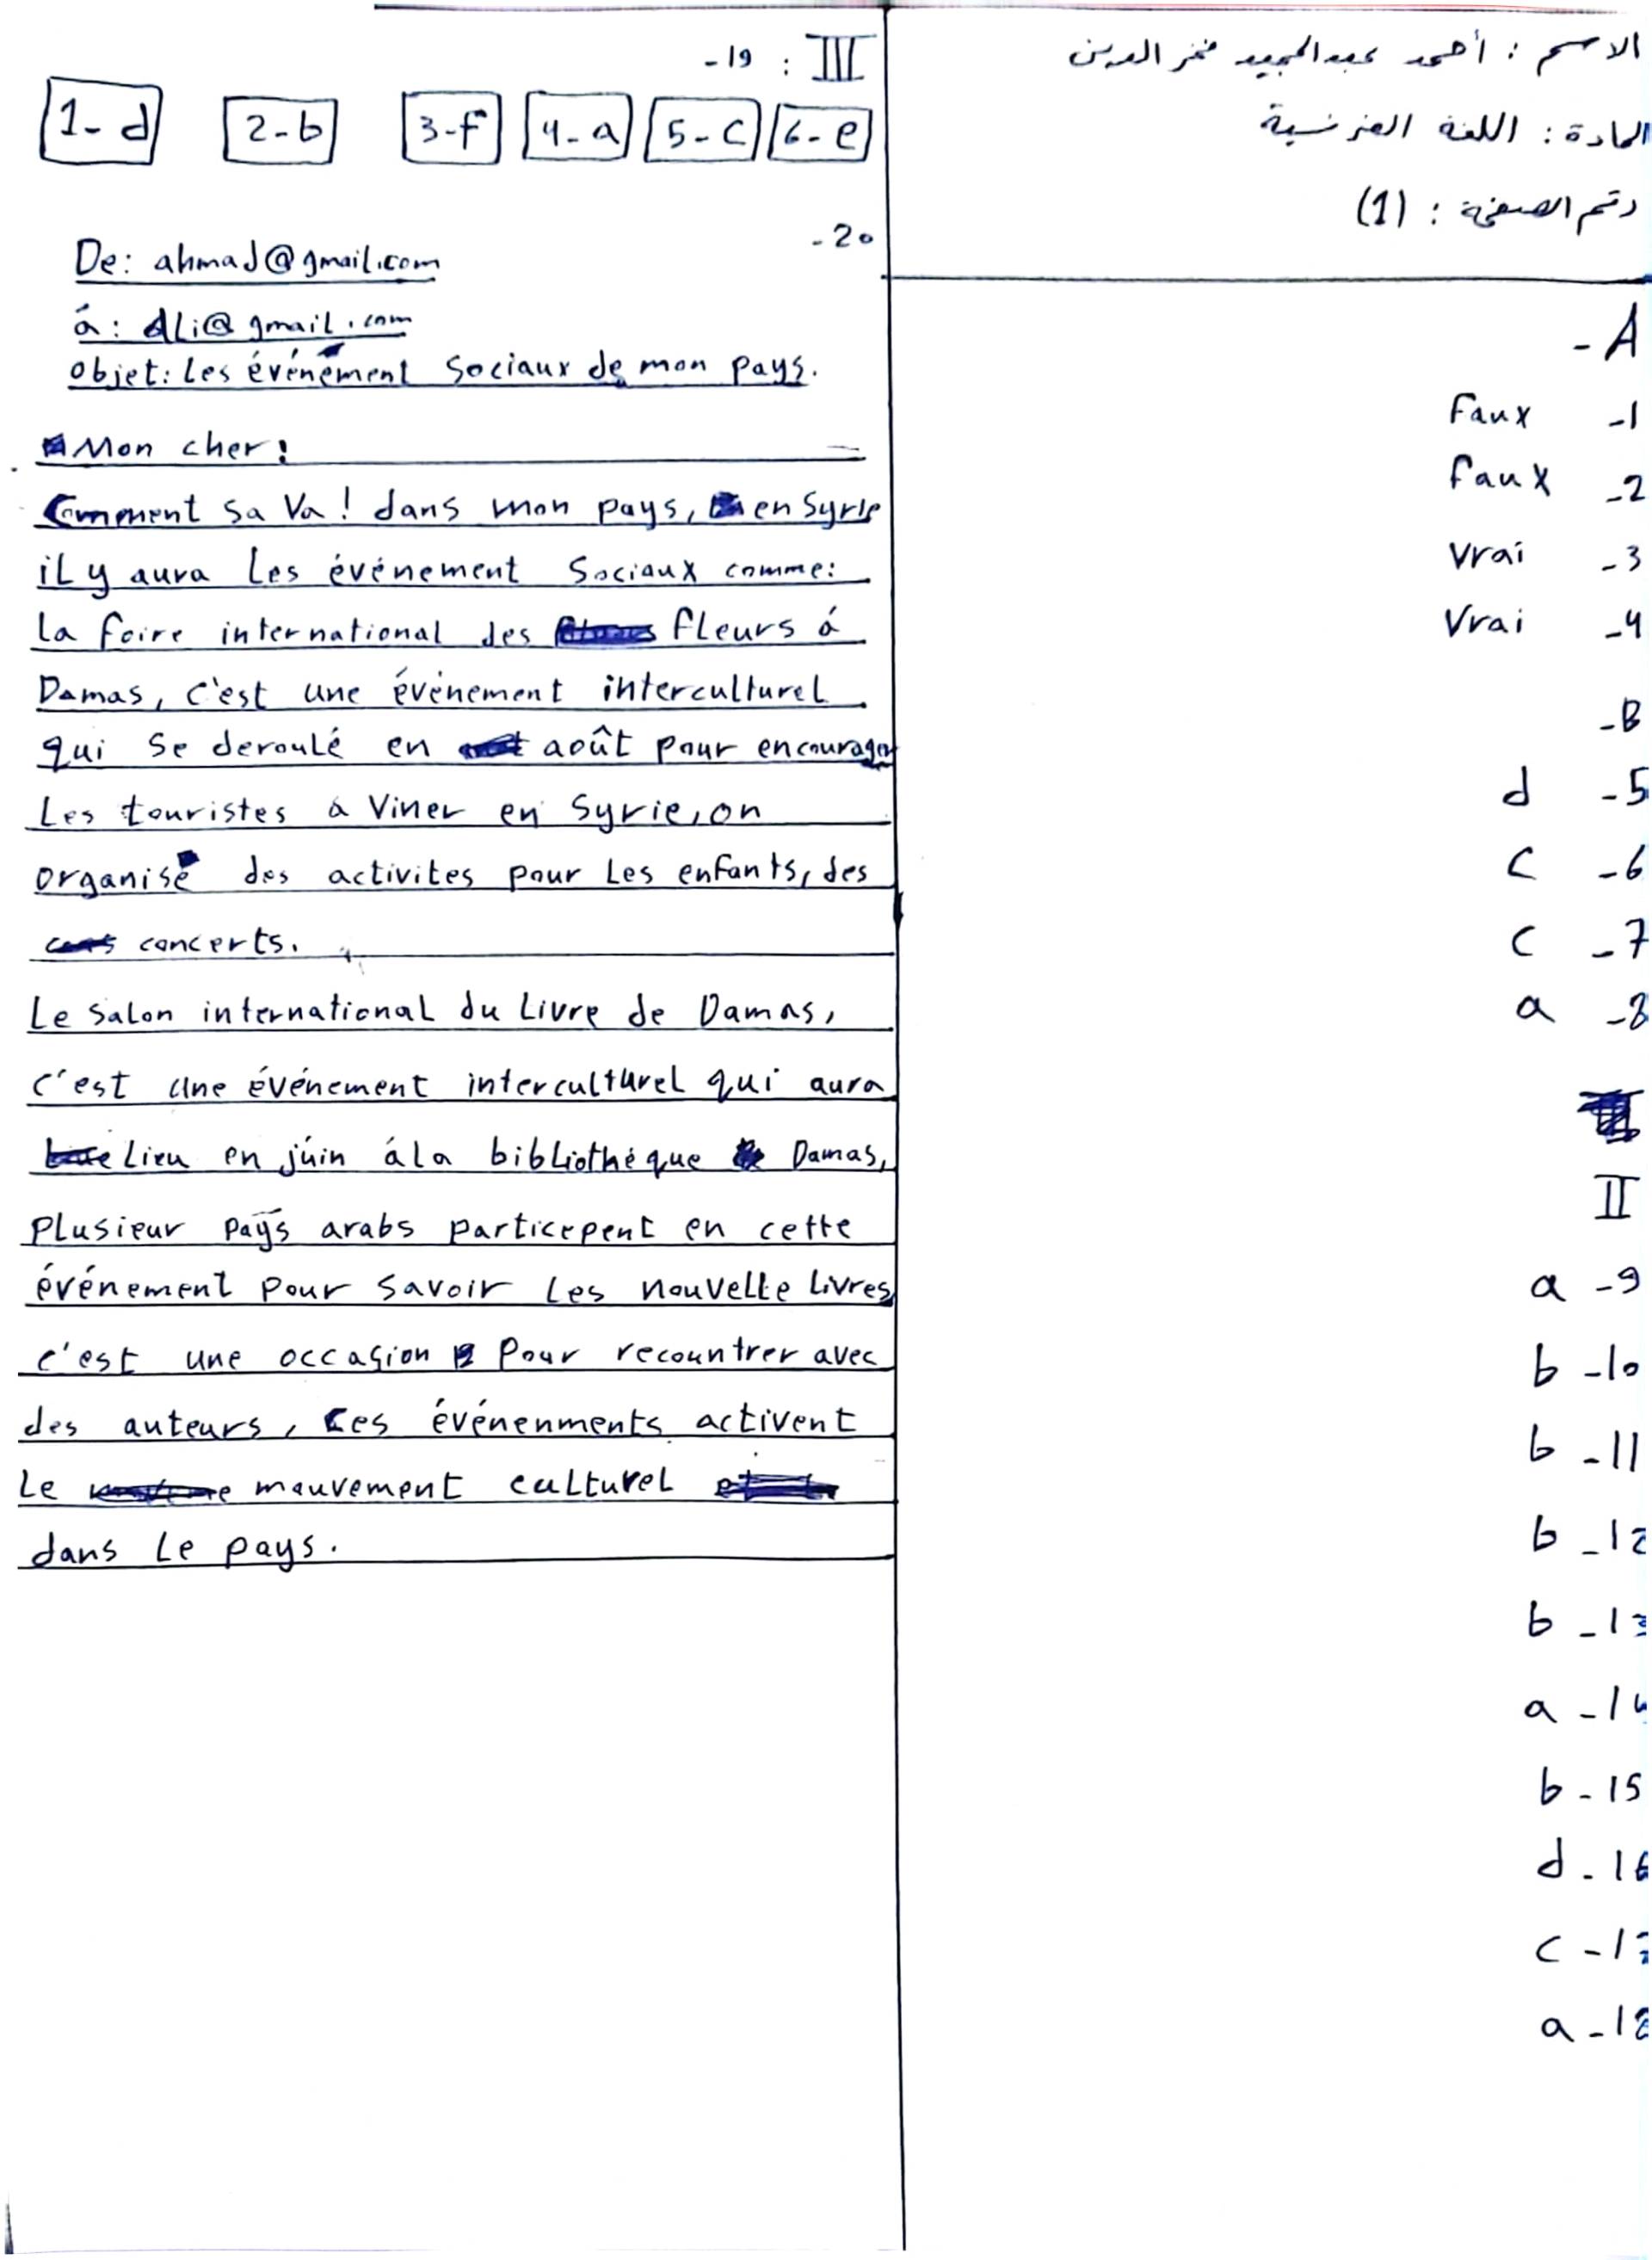 الاسم : أحمد عبدالمجيد فخر الدين
المادة : اللغة الفرنسية
رقم الصفحة : (1)
- A
Faux -1
faux -2
Vrai -3
Vrai -4
- B
d -5
c -6
c -7
a -8
II
a -9
b -10
b -11
b -12
b -13
a -14
b - 15
d - 16
c - 17
a - 18
-19 : III
1- d 2-b 3-f 4-a 5-c 6-e
-20
De: ahmad@gmail.com
á: ali@gmail.com
objet: Les événement Sociaux de mon pays.
Mon cher!
Comment sa Va! dans mon pays, en Syrie
il y aura Les événement Sociaux comme:
La foire international des fleurs á
Damas, c'est une événement interculturel
qui se deroulé en août pour encourager
Les touristes a Viner en Syrie, on
organisé des activites pour Les enfants, des
concerts.
Le salon international du Livre de Damas,
c'est une événement interculturel qui aura
Lieu en júin á la bibliothéque Damas,
Plusieur pays arabs particepent en cette
événement pour savoir Les nouvelle Livres
c'est une occasion pour recountrer avec
des auteurs, Ces événenments activent
Le mouvement culturel
dans Le pays.